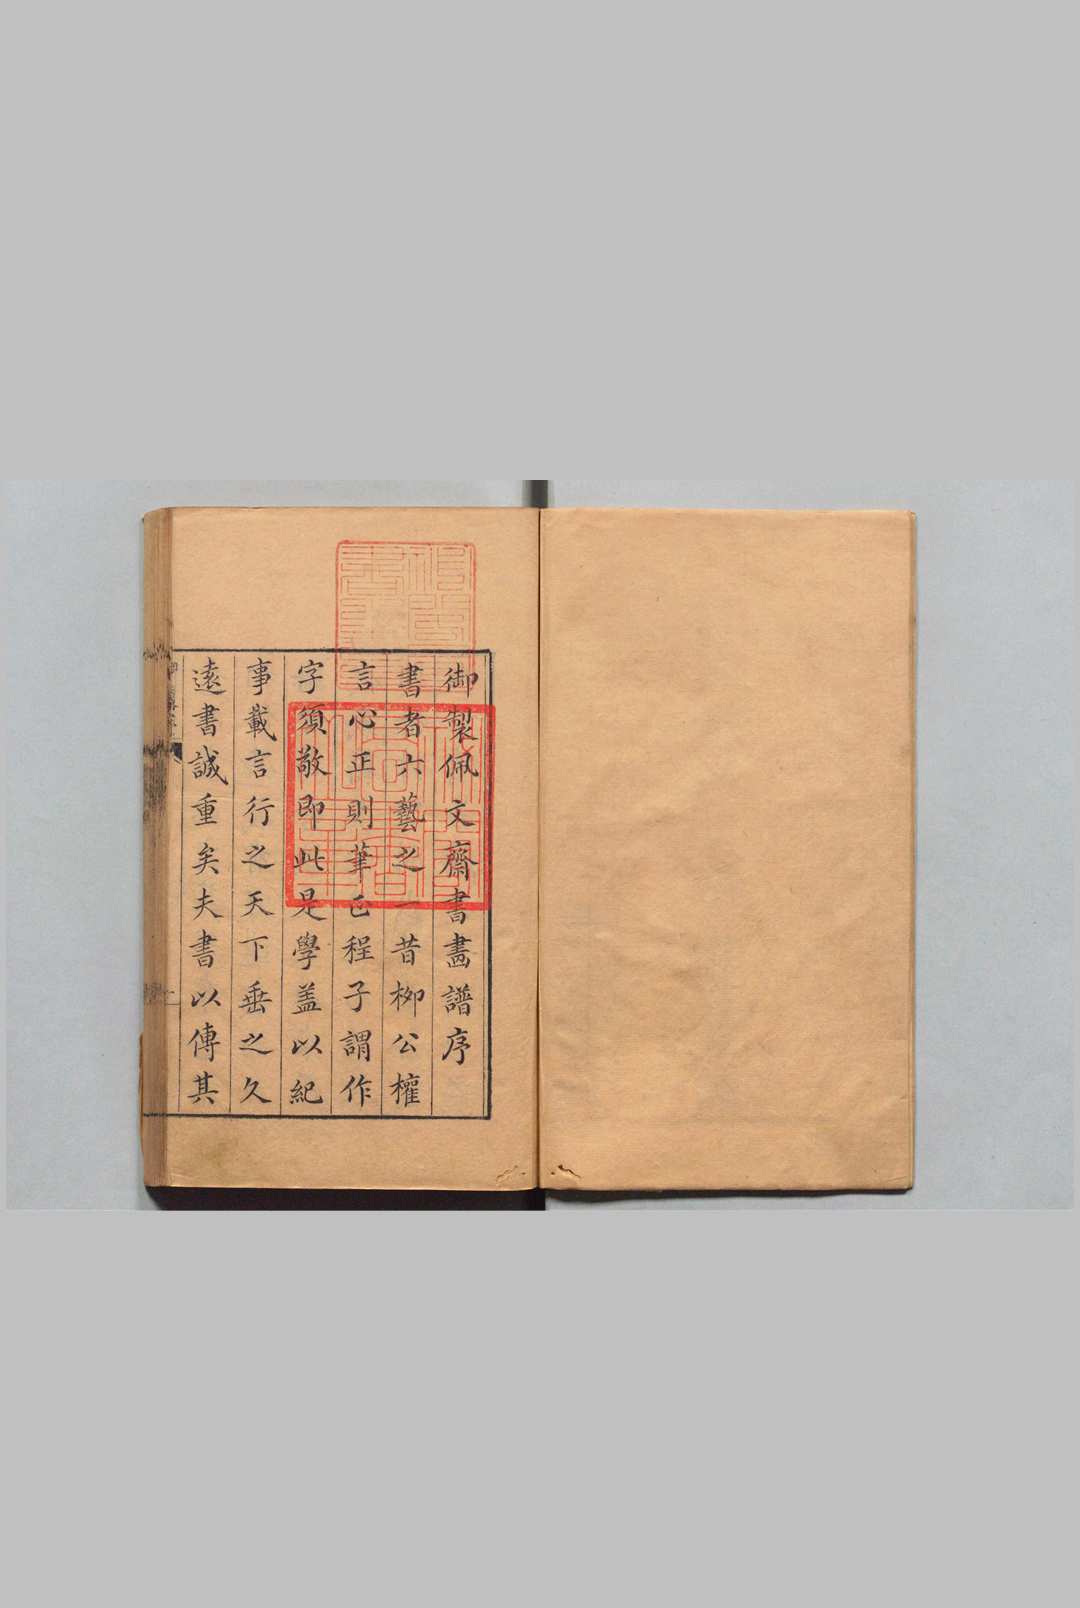 御製佩文齋書畫譜序
書者六藝之一昔柳公權
言心正則筆正程子謂作
字須敬即此是學盖以紀
事載言行之天下垂之久
遠書誠重矣夫書以傳其